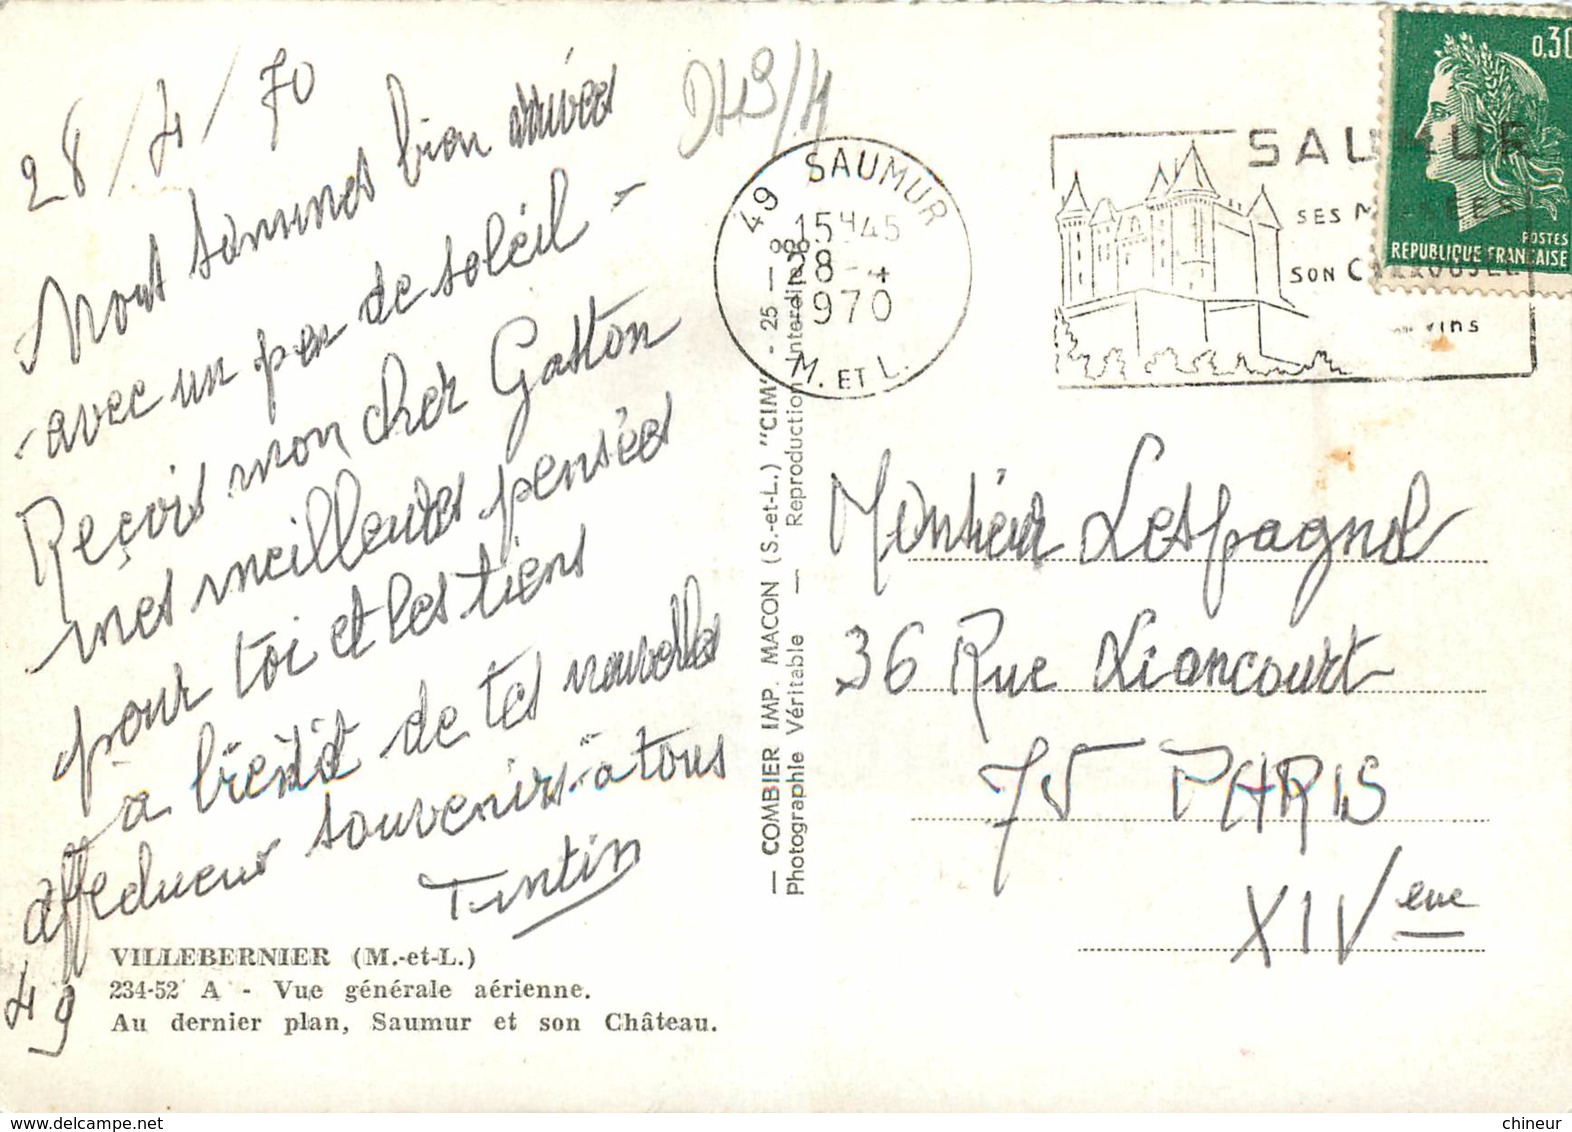 28/4/70
Nous sommes bien arrivées
- avec un peu de soleil -
Reçois mon cher Gaston
mes meilleures pensées
pour toi et les tiens
a bientôt de tes nouvelles
affectueux souvenirs à tous
Tintin
VILLEBERNIER (M.-et-L.)
234-52 A - Vue générale aérienne.
Au dernier plan, Saumur et son Château.
49
— COMBIER IMP. MACON (S.-et-L.) "CIM"
Photographie Véritable — Reproduction Interdite
- 25 -
49 SAUMUR
15H45
28-4
1970
M. ET L.
SAUMUR
SES MUSÉES
SON CARROUSEL
vins
0,30
POSTES
REPUBLIQUE FRANÇAISE
Monsieur Lespagnol
36 Rue Liancourt
75 PARIS
XIVeme
chineur